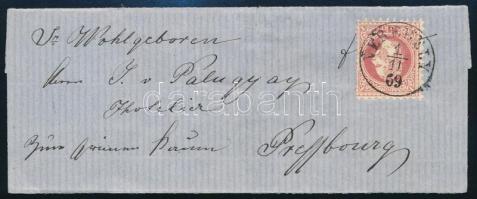 Sr Wohlgeboren
Herrn J. v Palugyay
Hotelier
Zum grünen Baum Pressbourg
1/11
69
darabanth